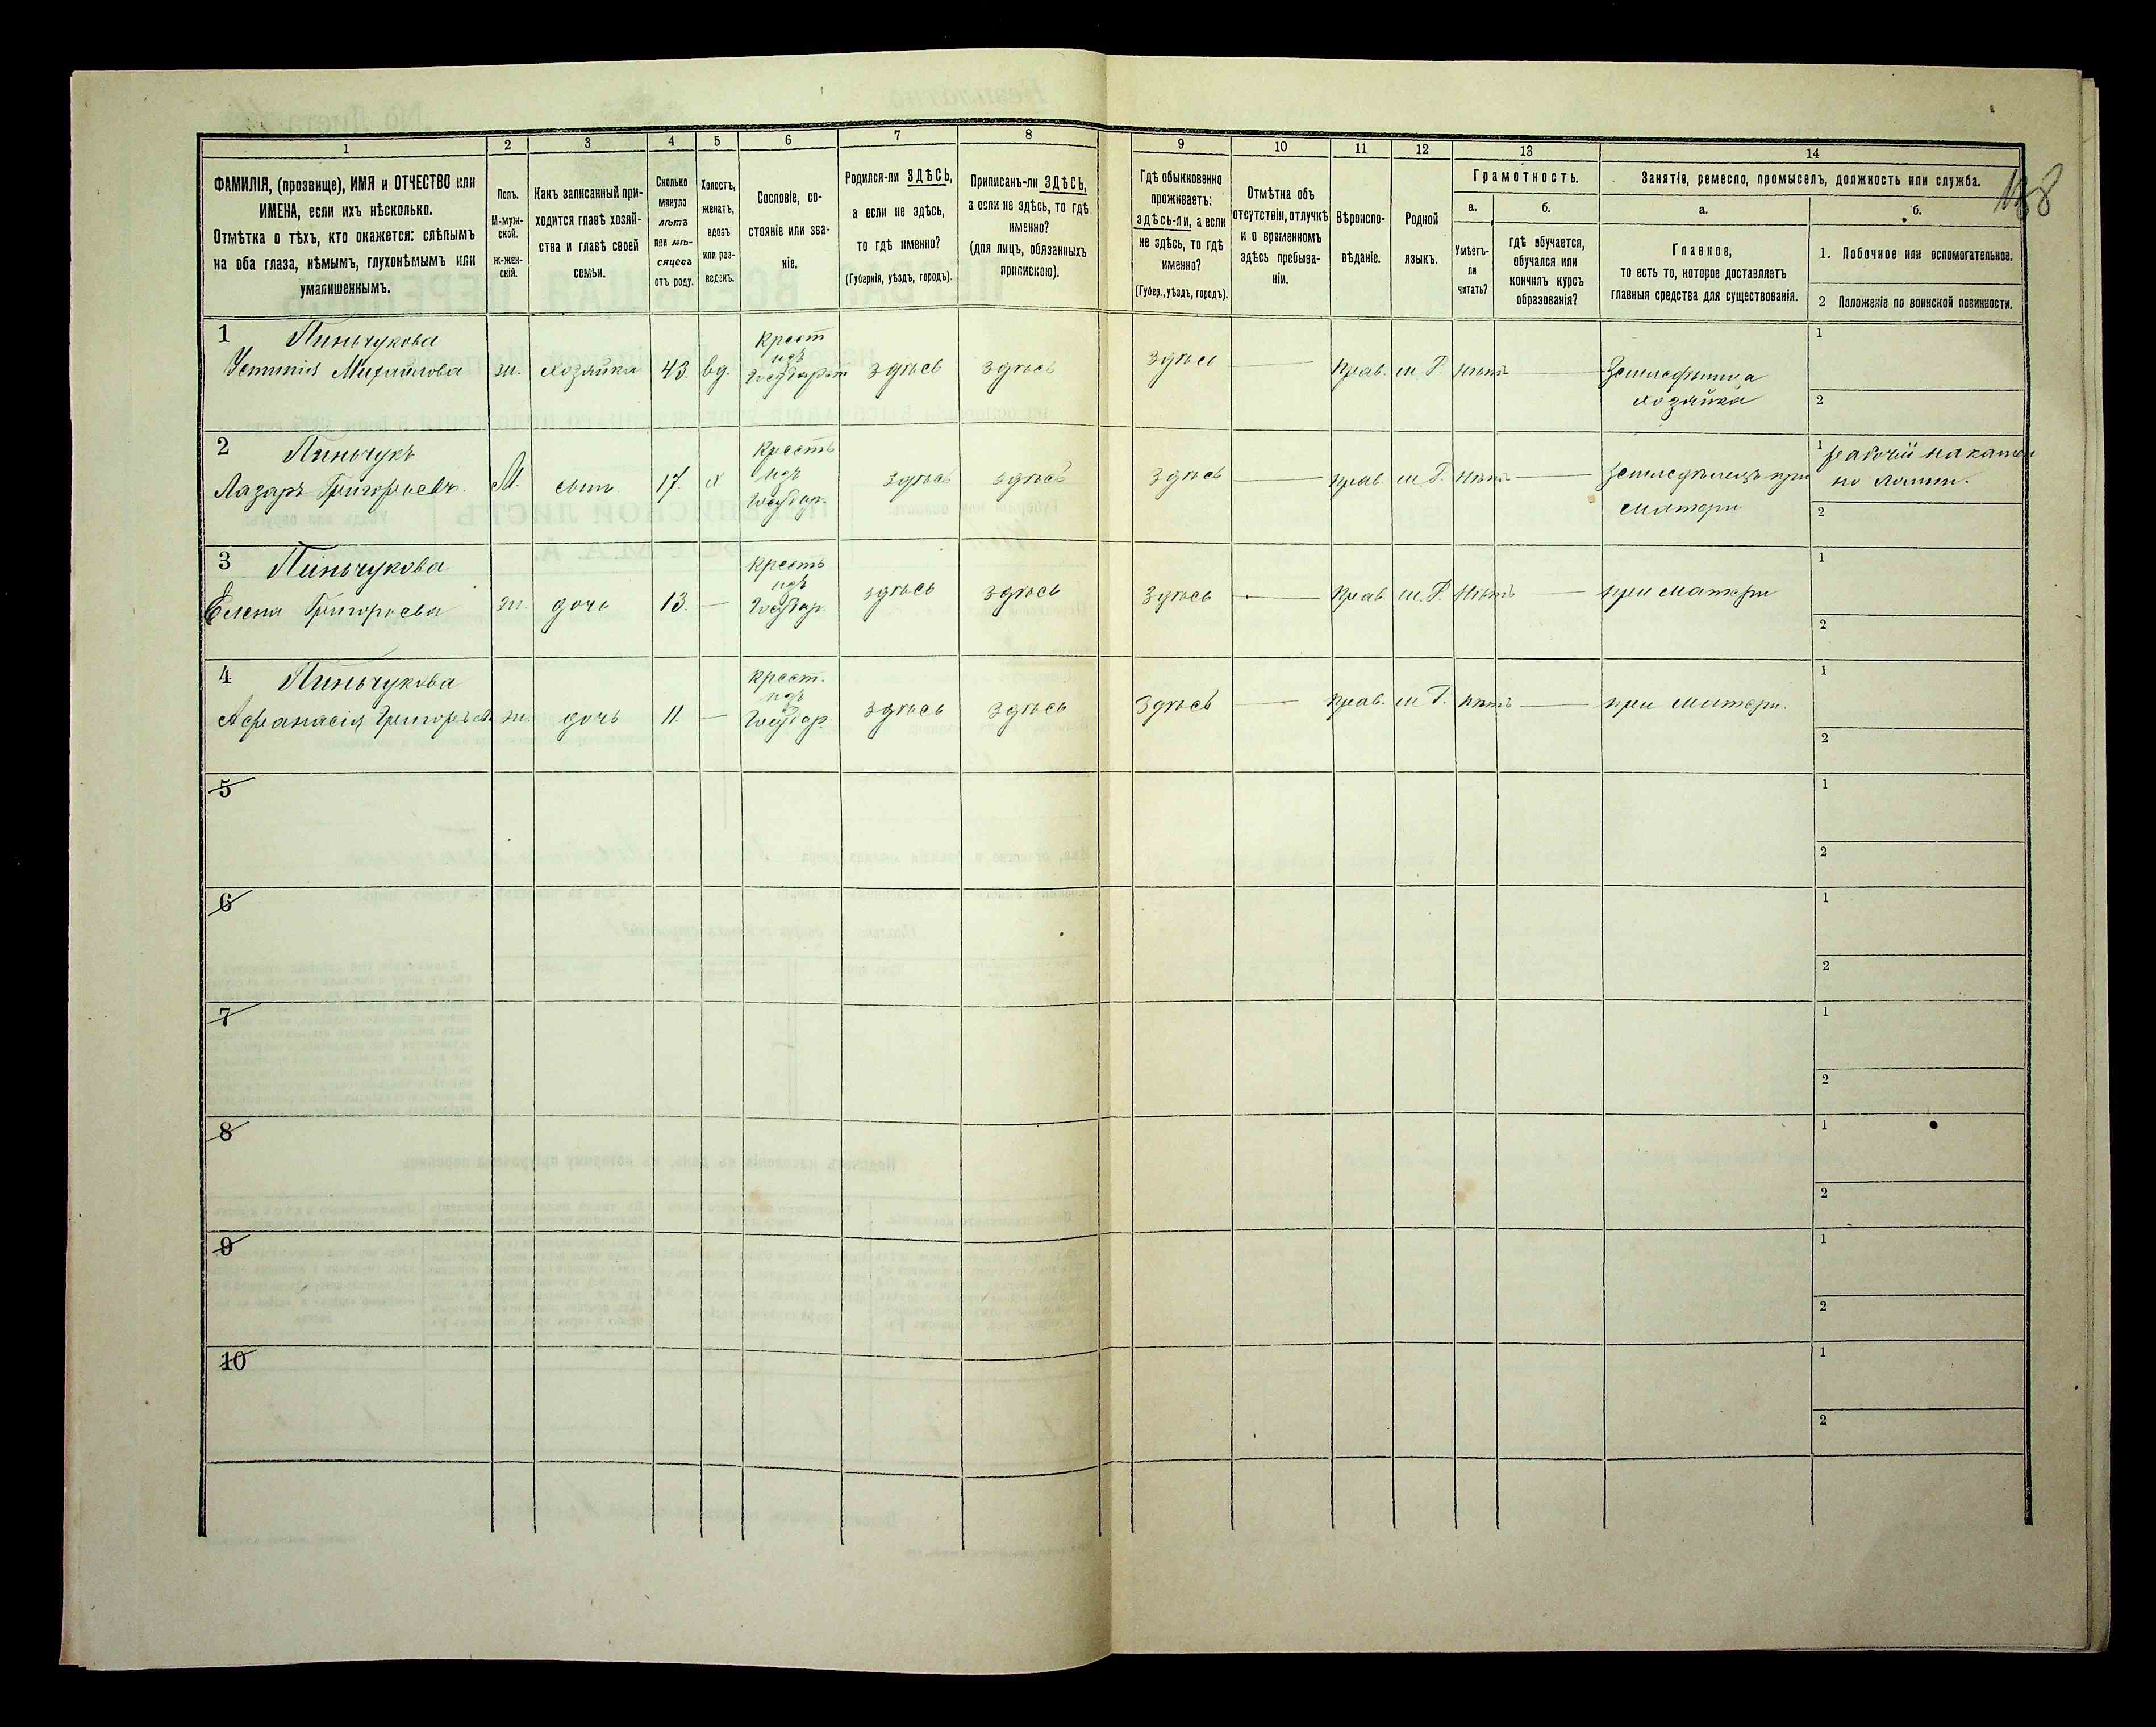 188
1
ФАМИЛІЯ, (прозвище), ИМЯ и ОТЧЕСТВО или
ИМЕНА, если ихъ нѣсколько.
Отмѣтка о тѣхъ, кто окажется: слѣпымъ
на оба глаза, нѣмымъ, глухонѣмымъ или
умалишеннымъ.
2
Полъ.
М-муж-
ской.
ж-жен-
скій.
3
Какъ записанный при-
ходится главѣ хозяй-
ства и главѣ своей
семьи.
4
Сколько
минуло
лѣтъ
или мѣ-
сяцевъ
отъ роду.
5
Холостъ,
женатъ,
вдовъ
или раз-
веденъ.
6
Сословіе, со-
стояніе или зва-
ніе.
7
Родился-ли ЗДѢСЬ,
а если не здѣсь,
то гдѣ именно?
(Губернія, уѣздъ, городъ).
8
Приписанъ-ли ЗДѢСЬ,
а если не здѣсь, то гдѣ
именно?
(для лицъ, обязанныхъ
припискою).
9
Гдѣ обыкновенно
проживаетъ:
здѣсь-ли, а если
не здѣсь, то гдѣ
именно?
(Губер., уѣздъ, городъ).
10
Отмѣтка объ
отсутствіи, отлучкѣ
и о временномъ
здѣсь пребыва-
ніи.
11
Вѣроиспо-
вѣданіе.
12
Родной
языкъ.
13
Грамотность.
а.
Умѣетъ-
ли
читать?
б.
гдѣ обучается,
обучался или
кончилъ курсъ
образованія?
14
Занятіе, ремесло, промыселъ, должность или служба.
а.
Главное,
то есть то, которое доставляетъ
главныя средства для существованія.
б.
1. Побочное или вспомогательное.
2 Положеніе по воинской повинности.
1 Пиньчукова
Устинія Михайлова
ж.
хозяйка
43.
вд.
Крест
изъ
Государст
здѣсь
здѣсь
здѣсь
—
Прав.
м. Р.
нѣтъ
—
Земледѣлица
хозяйка
1
2
2 Пиньчукъ
Лазарь Григорьевъ.
М.
сынъ.
17.
х
Крестъ
изъ
Государ.
здѣсь
здѣсь
здѣсь
—
прав.
м. Р.
нѣтъ
—
Земледѣлецъ при
матери
1 рабочій на
2
3 Пиньчукова
Елена Григорьева
ж.
дочь
13.
—
Крестъ
изъ
Государ.
здѣсь
здѣсь
здѣсь
—
Прав.
м. Р.
нѣтъ
—
при матери
1
2
4 Пиньчукова
Афанасія Григорьева
ж.
дочь
11.
—
Крест.
изъ
Государ.
здѣсь
здѣсь
здѣсь
—
прав.
м. Р.
нѣтъ
—
при матери.
1
2
5
1
2
6
1
2
7
1
2
8
1
2
9
1
2
10
1
2